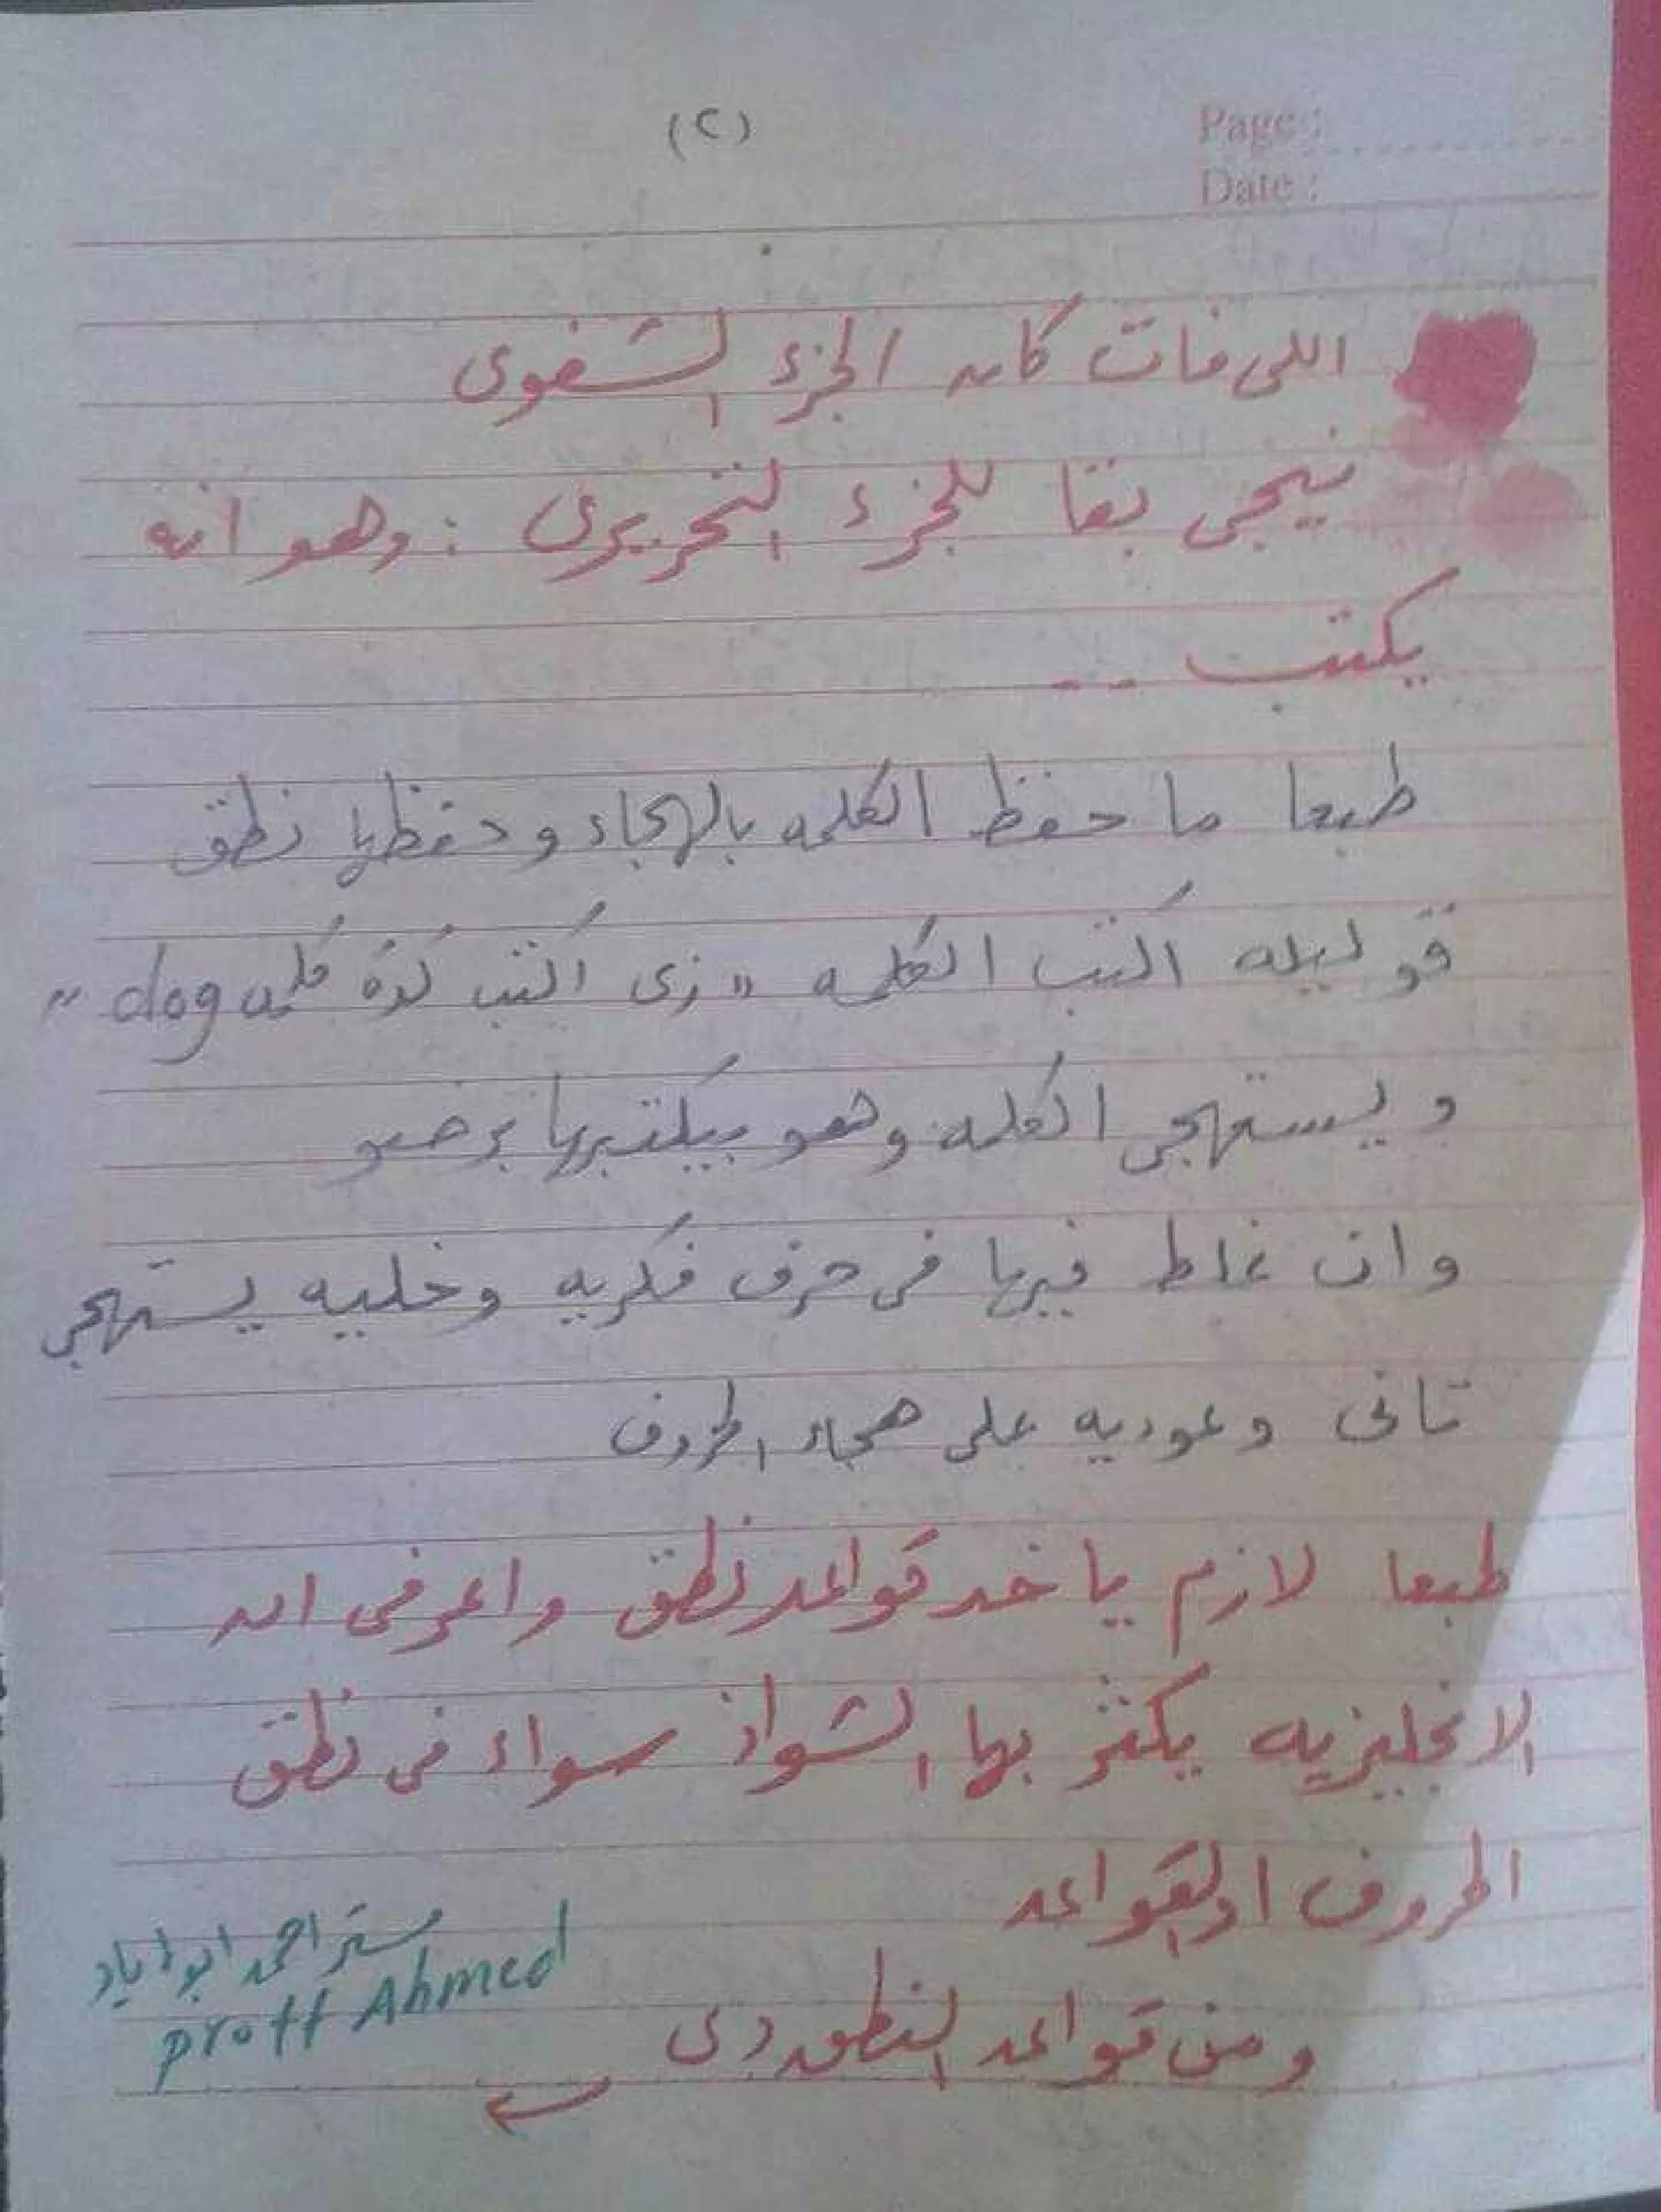 (٢)
Page :
Date :
اللى فات كان الجزء الشفوى
نيجى بقا للجزء التحريرى : وهو انه
يكتب --
طبعا ما حفظ الكلمه بالهجاء وحفظها نطق
قوليله اكتب الكلمه "زى اكتب كدة كلمه dog"
ويستهجى الكلمه وهو بيكتبها برضو
وان غلط فيها فى حرف فكريه وخليه يستهجى
تانى وعوديه على هجاء الحروف
طبعا لازم ياخد قواعد نطق واعرفى ان
الانجليزيه يكثر بها الشواذ سواء فى نطق
الحروف او القواعد
ومن قواعد النطق دى
مستر احمد ابو اياد
proff Ahmed